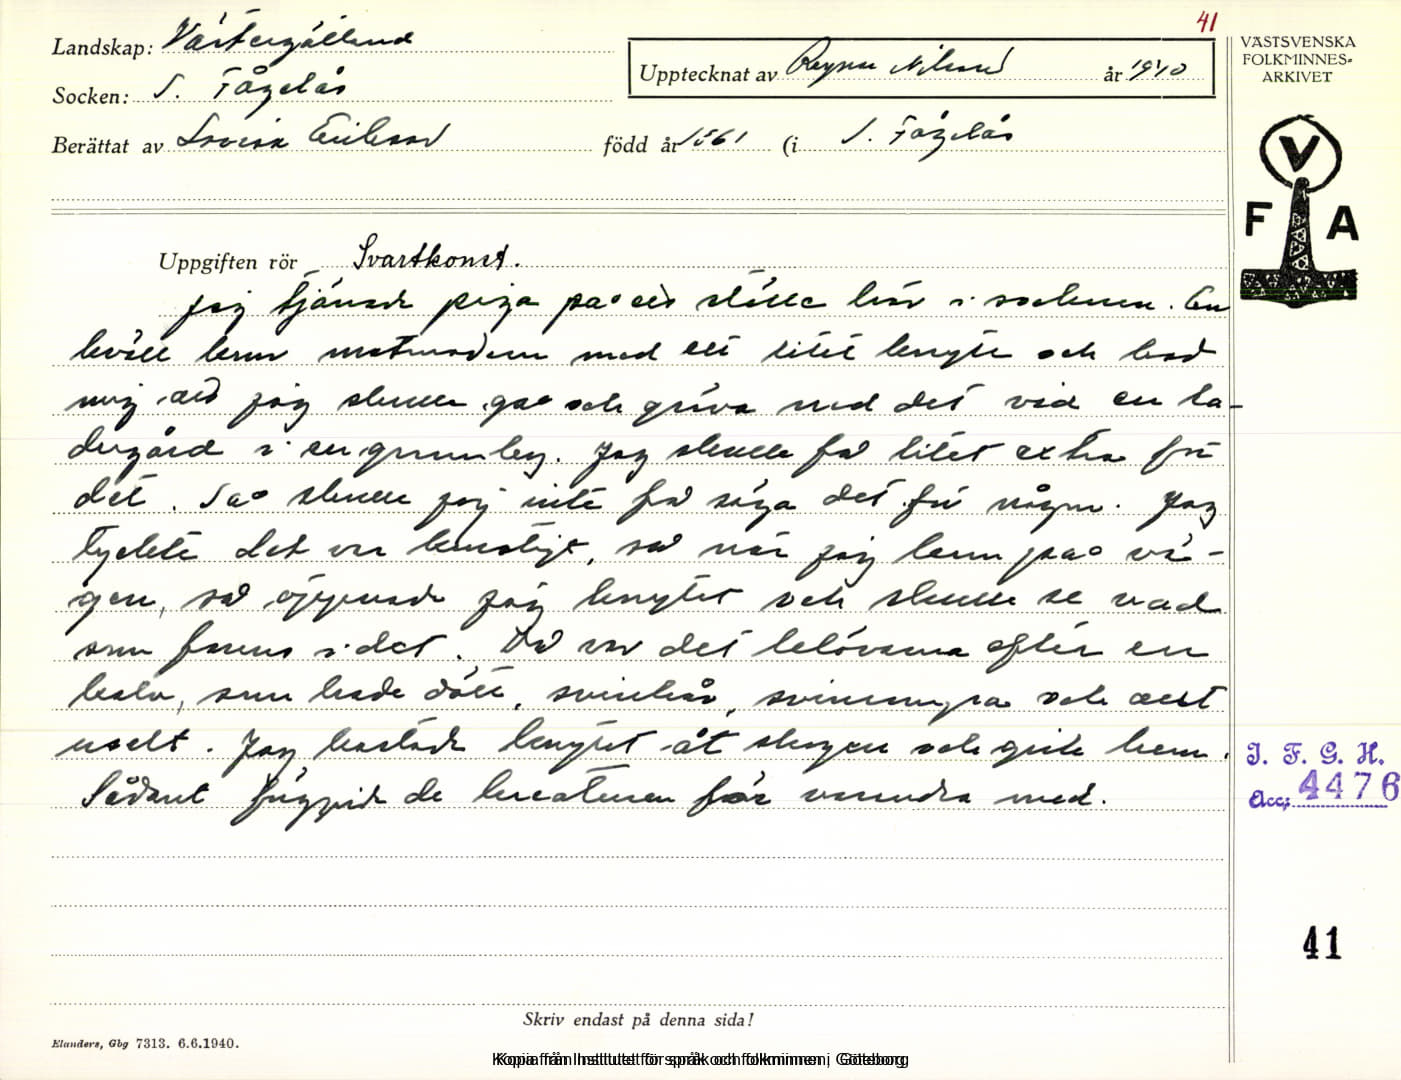 41
Landskap: Västergötland
Socken: S. Fågelås
Berättat av Lovisa Erikson
Upptecknat av Ragnar Nilsson år 1940
född år 1861 (i S. Fågelås
VÄSTSVENSKA
FOLKMINNES-
ARKIVET
V
F A
Uppgiften rör Svartkonst.
Jag tjänade piga på ett ställe här i socknen. En
kväll kom matmodern med ett litet knyte och bad
mig att jag skulle gå och gräva ned det vid en la-
dugård i en grannby. Jag skulle få litet extra för
det. Så skulle jag inte få säga det för någon. Jag
tyckte det var konstigt, så när jag kom på vä-
gen, så öppnade jag knytet och skulle se vad
som fanns i det. Då var det lelövarna efter en
kalv, som hade dött, svinhår, svin och allt
uselt. Jag kastade knytet åt skogen och gick hem.
Sådant de kreaturen för varandra med.
I. F. G. H.
Acc: 4476
41
Skriv endast på denna sida!
Elanders, Gbg 7313. 6.6.1940.
Kopia från Institutet för språk och folkminnen, Göteborg